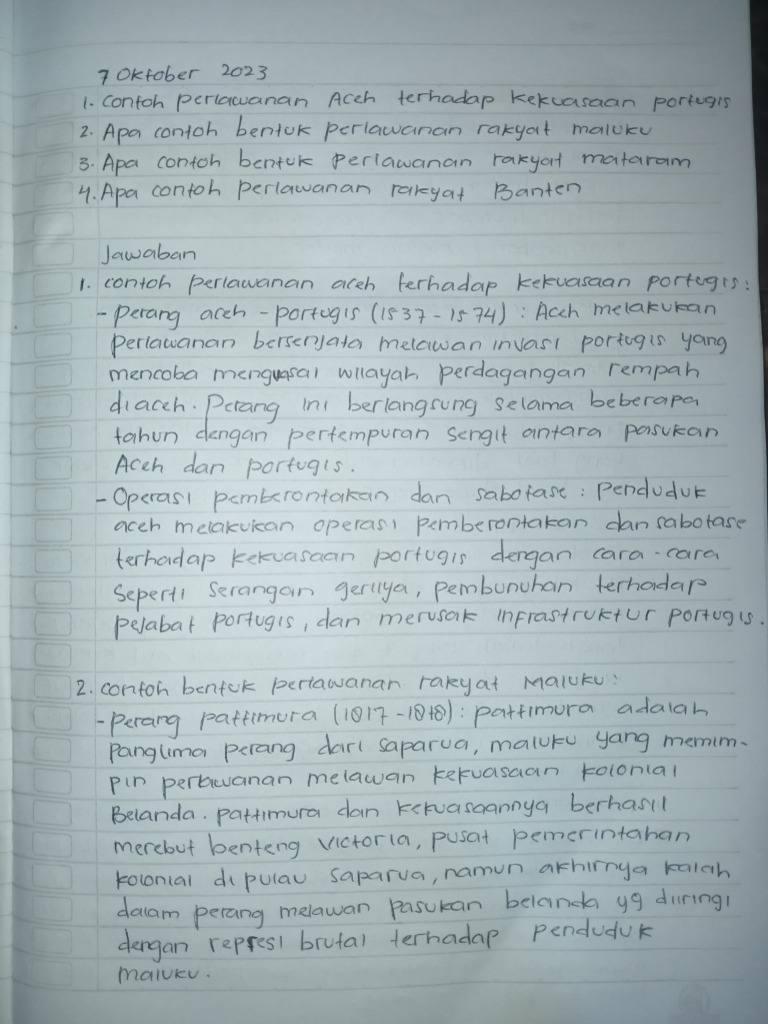 7 Oktober 2023
1. Contoh perlawanan Aceh terhadap kekuasaan portugis
2. Apa contoh bentuk perlawanan rakyat maluku
3. Apa contoh bentuk perlawanan rakyat mataram
4. Apa contoh perlawanan rakyat Banten
Jawaban
1. contoh perlawanan aceh terhadap kekuasaan portugis:
- perang aceh - portugis (1537-1574) : Aceh melakukan
perlawanan bersenjata melawan invasi portugis yang
mencoba menguasai wilayah perdagangan rempah
diaceh. Perang ini berlangsung selama beberapa
tahun dengan pertempuran sengit antara pasukan
Aceh dan portugis.
- Operasi pemberontakan dan sabotase : penduduk
aceh melakukan operasi pemberontakan dan sabotase
terhadap kekuasaan portugis dengan cara-cara
seperti serangan geriya, pembunuhan terhadap
pejabat portugis, dan merusak infrastruktur portugis.
2. contoh bentuk perlawanan rakyat Maluku:
- perang pattimura (1817-1818): pattimura adalah
panglima perang dari saparua, maluku yang memim-
pin perlawanan melawan kekuasaan kolonial
Belanda. pattimura dan kekuasaannya berhasil
merebut benteng victoria, pusat pemerintahan
kolonial di pulau saparua, namun akhirnya kalah
dalam perang melawan pasukan belanda yg diiringi
dengan represi brutal terhadap penduduk
maluku.